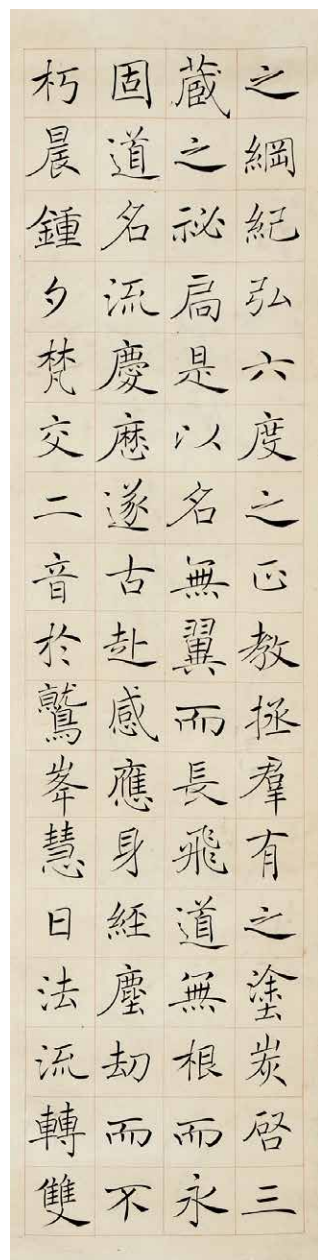 之綱紀弘六度之正教拯羣有之塗炭啓三
蔵之祕扃是以名無翼而長飛道無根而永
固道名流慶歷遂古赴感應身經塵劫而不
朽晨鍾夕梵交二音於鷲峯慧日法流轉雙